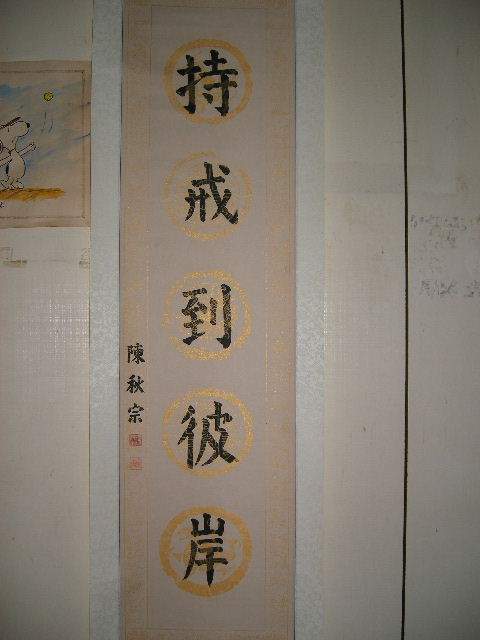 持戒到彼岸
陳秋宗